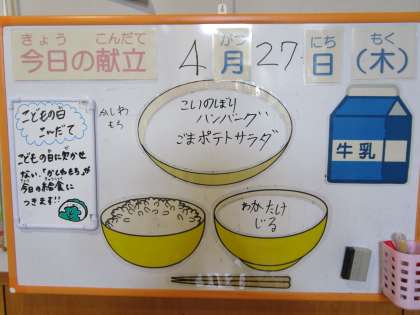 きょう こんだて
今日の献立
4月27日(木)
がつ にち もく
こどもの日
こんだて
こどもの日に欠かせ
ない、「かしわもち」が
今日の給食に
つきます!!
かしわ
もち
こいのぼり
ハンバーグ
ごまポテトサラダ
牛乳
わかたけ
じる